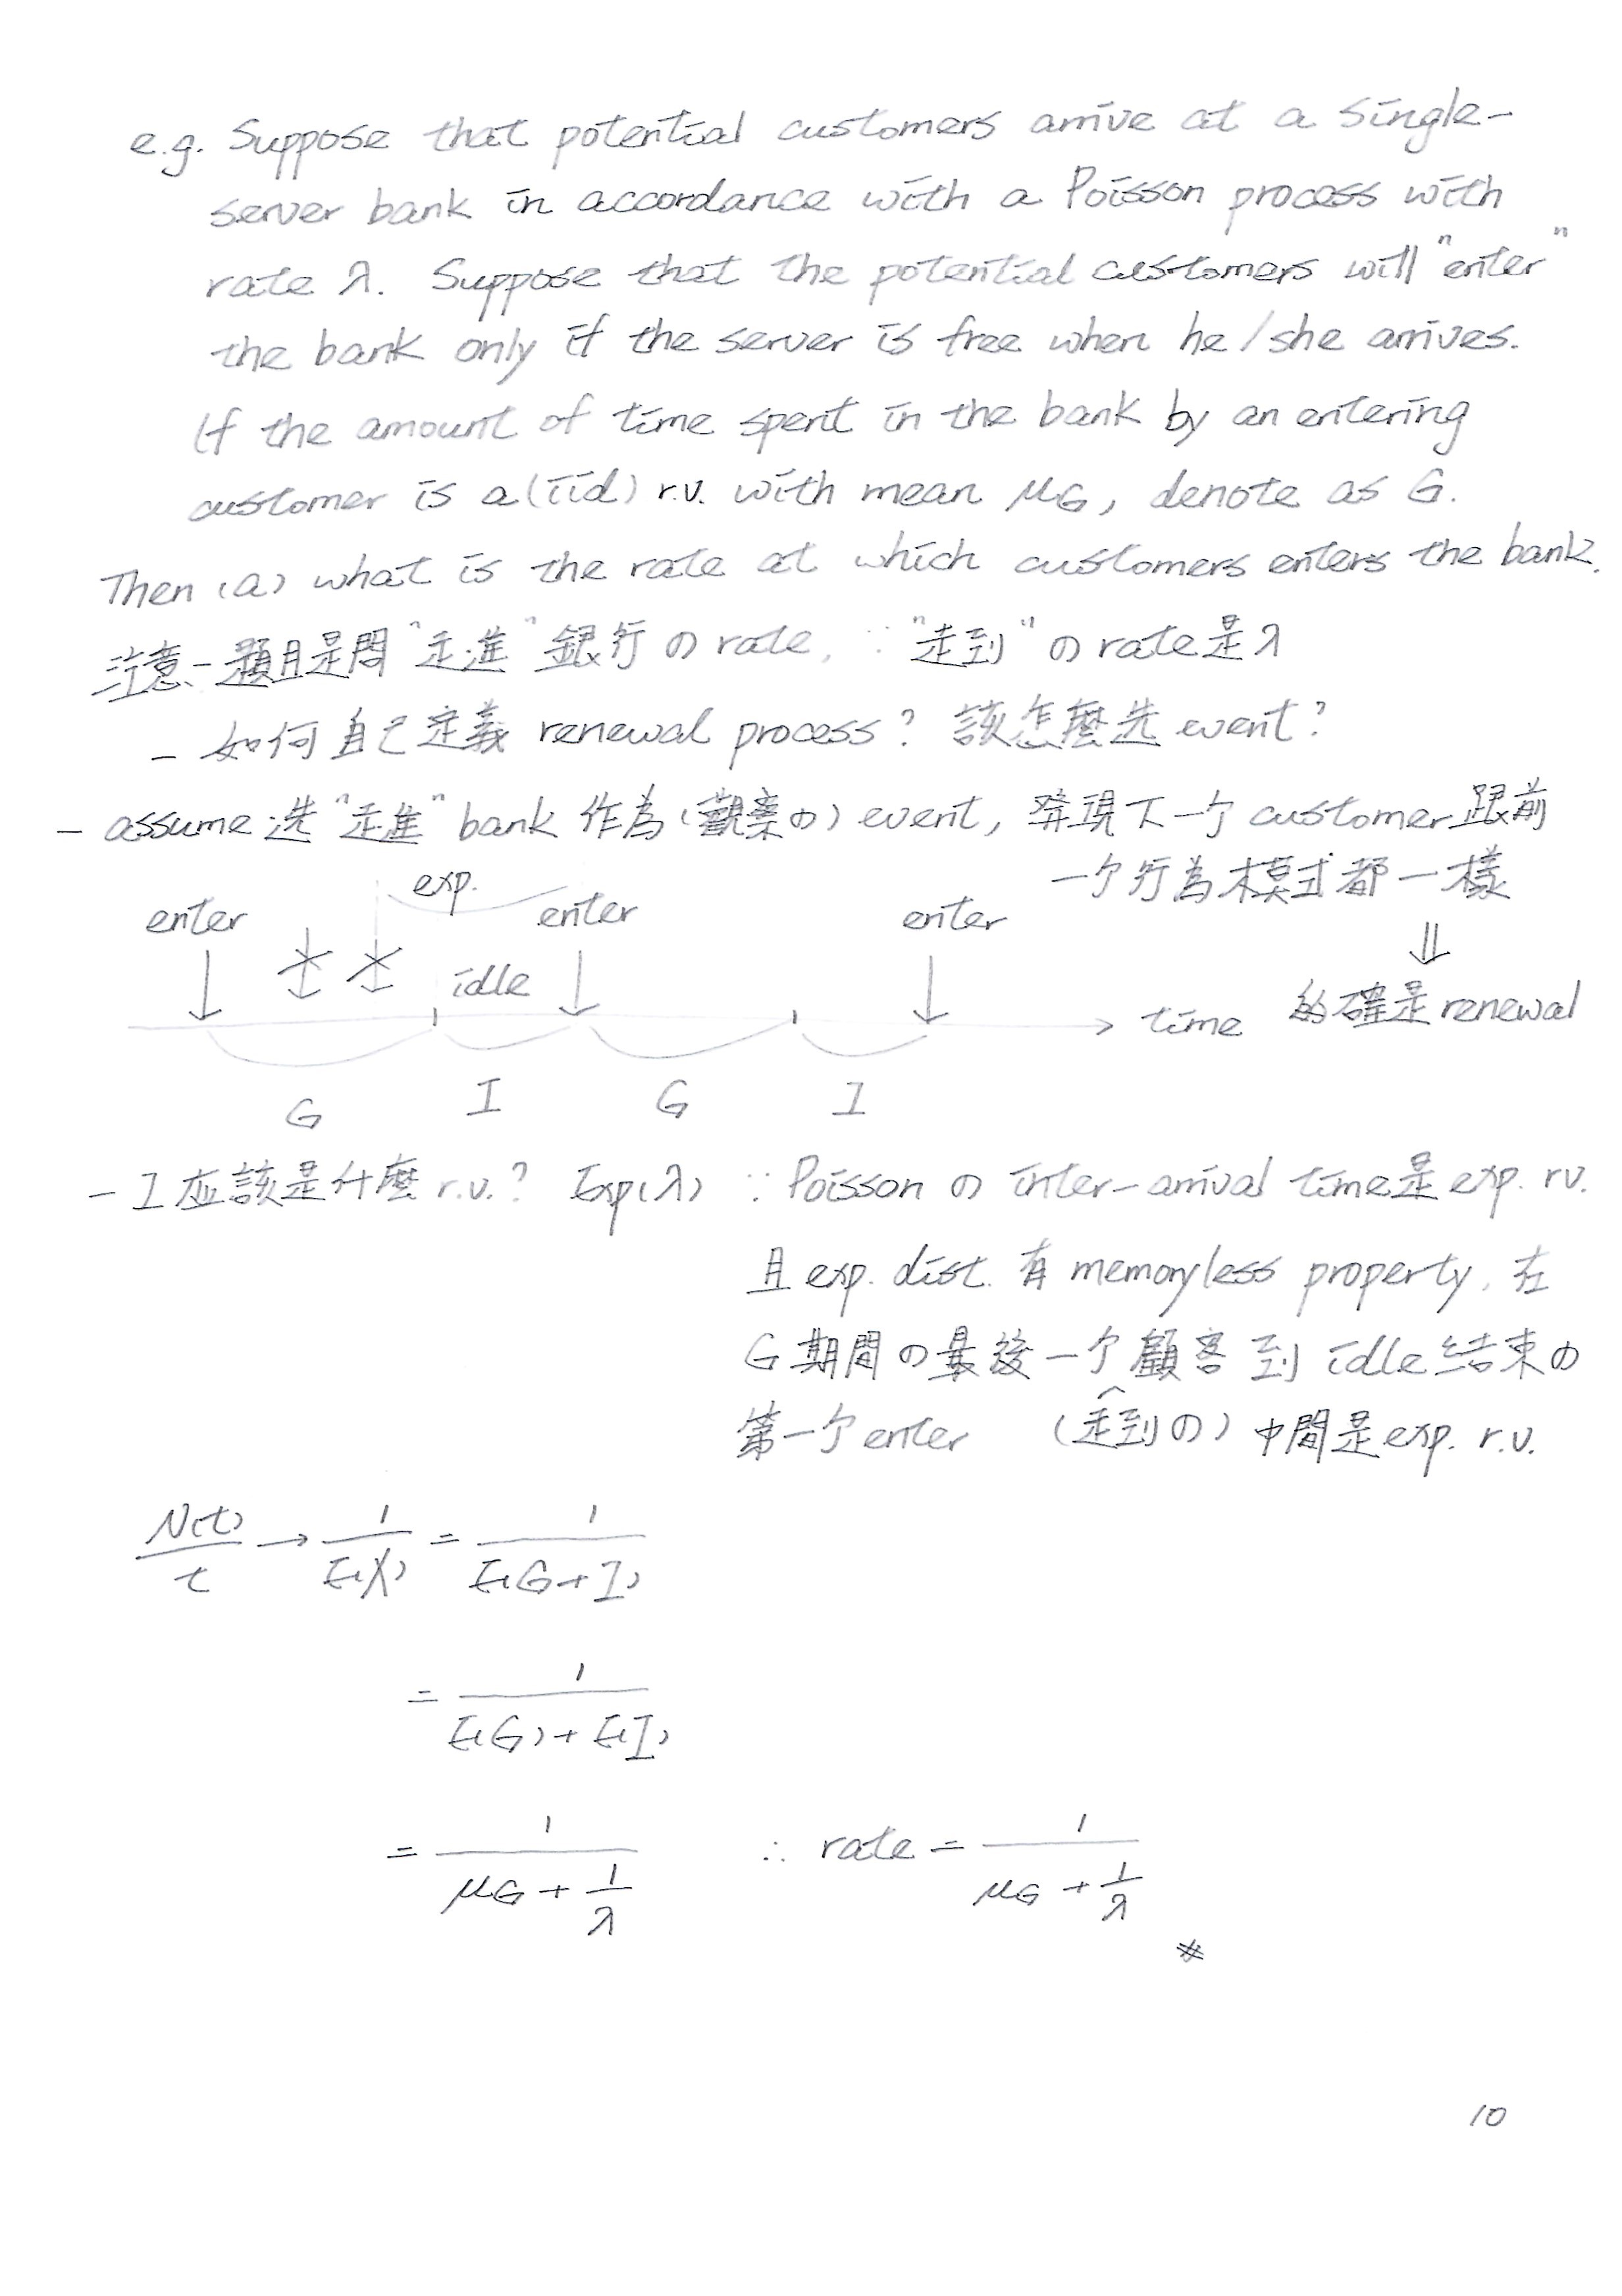 e.g. Suppose that potential customers arrive at a single-
server bank in accordance with a Poisson process with
rate λ. Suppose that the potential customers will "enter"
the bank only if the server is free when he/she arrives.
If the amount of time spent in the bank by an entering
customer is a (iid) r.v. with mean μG, denote as G.
Then (a) what is the rate at which customers enters the bank.
注意 - 題目是問 "走進" 銀行の rate, ∵ "走到" の rate 是 λ
- 如何自己定義 renewal process? 該怎麼选 event?
- assume 选 "走進" bank 作為 (觀察の) event, 發現下一个 customer 跟前
一个行為模式都一樣
⇓
的確是 renewal
exp.
enter enter enter
idle
time
G I G I
- I 应該是什麼 r.v.? Exp(λ) ∵ Poisson の inter-arrival time 是 exp. rv.
且 exp. dist. 有 memoryless property, 在
G 期間の最後一个顧客到 idle 结束の
第一个 enter (走到の) 中間是 exp. r.v.
N(t)/t → 1/E(X) = 1/E(G+I)
= 1/(E(G)+E(I))
= 1/(μG + 1/λ) ∴ rate = 1/(μG + 1/λ) #
10